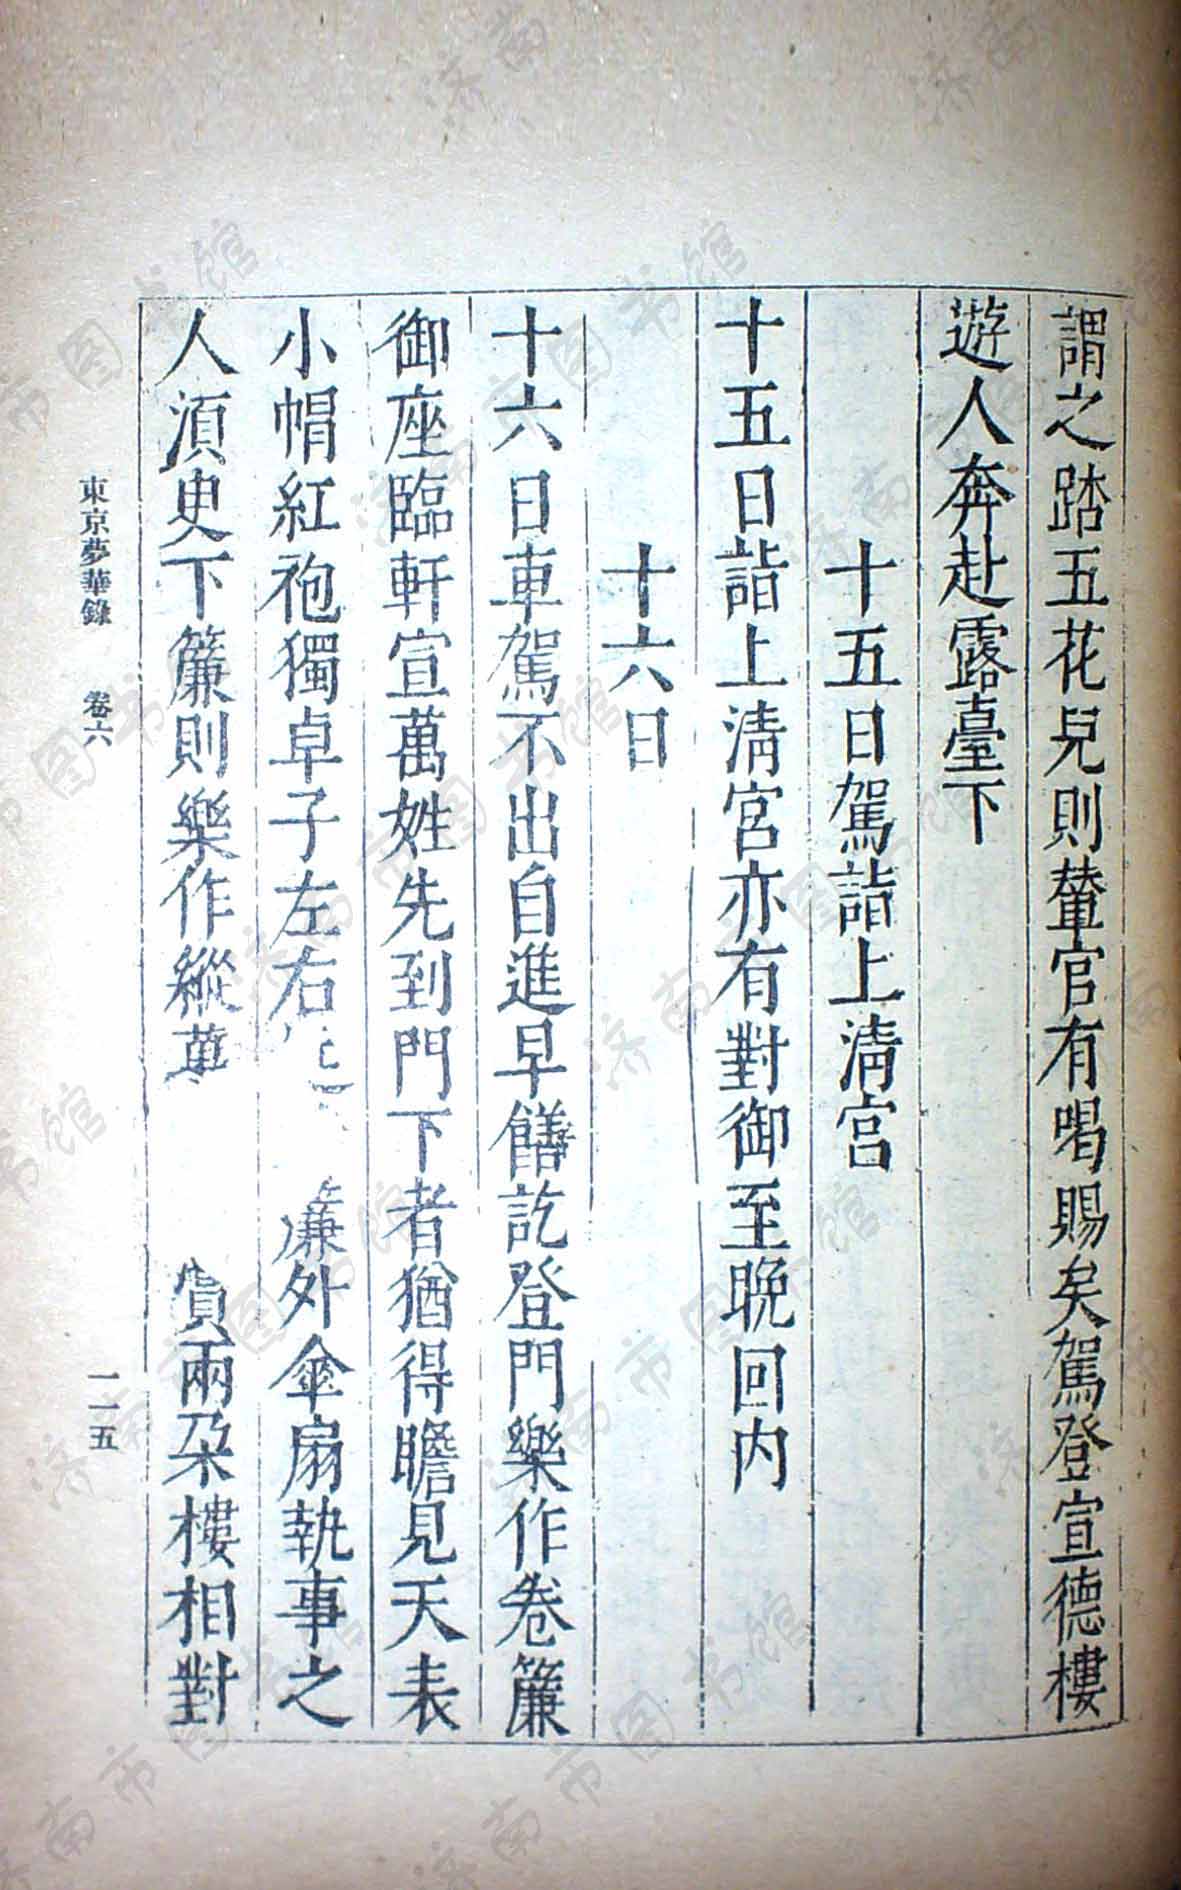 謂之踏五花兒則輦官有喝賜矣駕登宣德樓
遊人奔赴露臺下
十五日駕詣上清宮
十五日詣上清宮亦有對御至晚回内
十六日
十六日車駕不出自進早饍訖登門樂作卷簾
御座臨軒宣萬姓先到門下者猶得瞻見天表
小帽紅袍獨卓子左右 簾外傘扇執事之
人湏臾下簾則樂作縱萬 賞兩朶樓相對
東京夢華錄 卷六 一一五
济南市图书馆